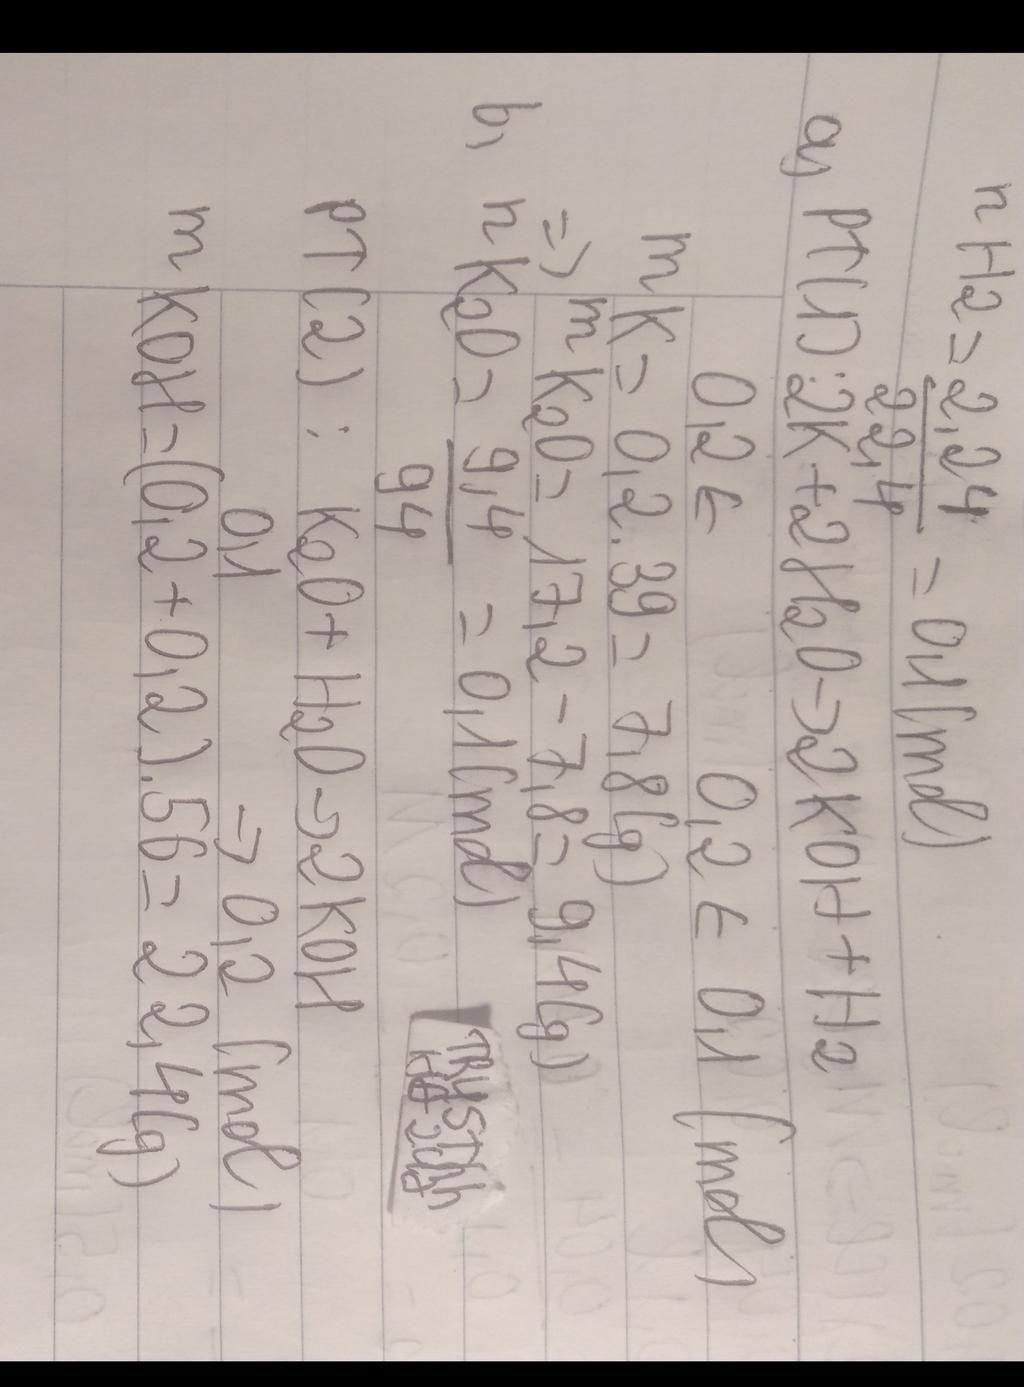 nH2 = 2,24 / 22,4 = 0,1 (mol)
a, PT(1): 2K + 2H2O → 2KOH + H2
0,2 ← 0,2 ← 0,1 (mol)
mK = 0,2.39 = 7,8(g)
=> mK2O = 17,2 - 7,8 = 9,4(g)
b, nK2O = 9,4 / 94 = 0,1 (mol)
PT(2): K2O + H2O → 2KOH
0,1 => 0,2 (mol)
mKOH = (0,2 + 0,2).56 = 22,4(g)